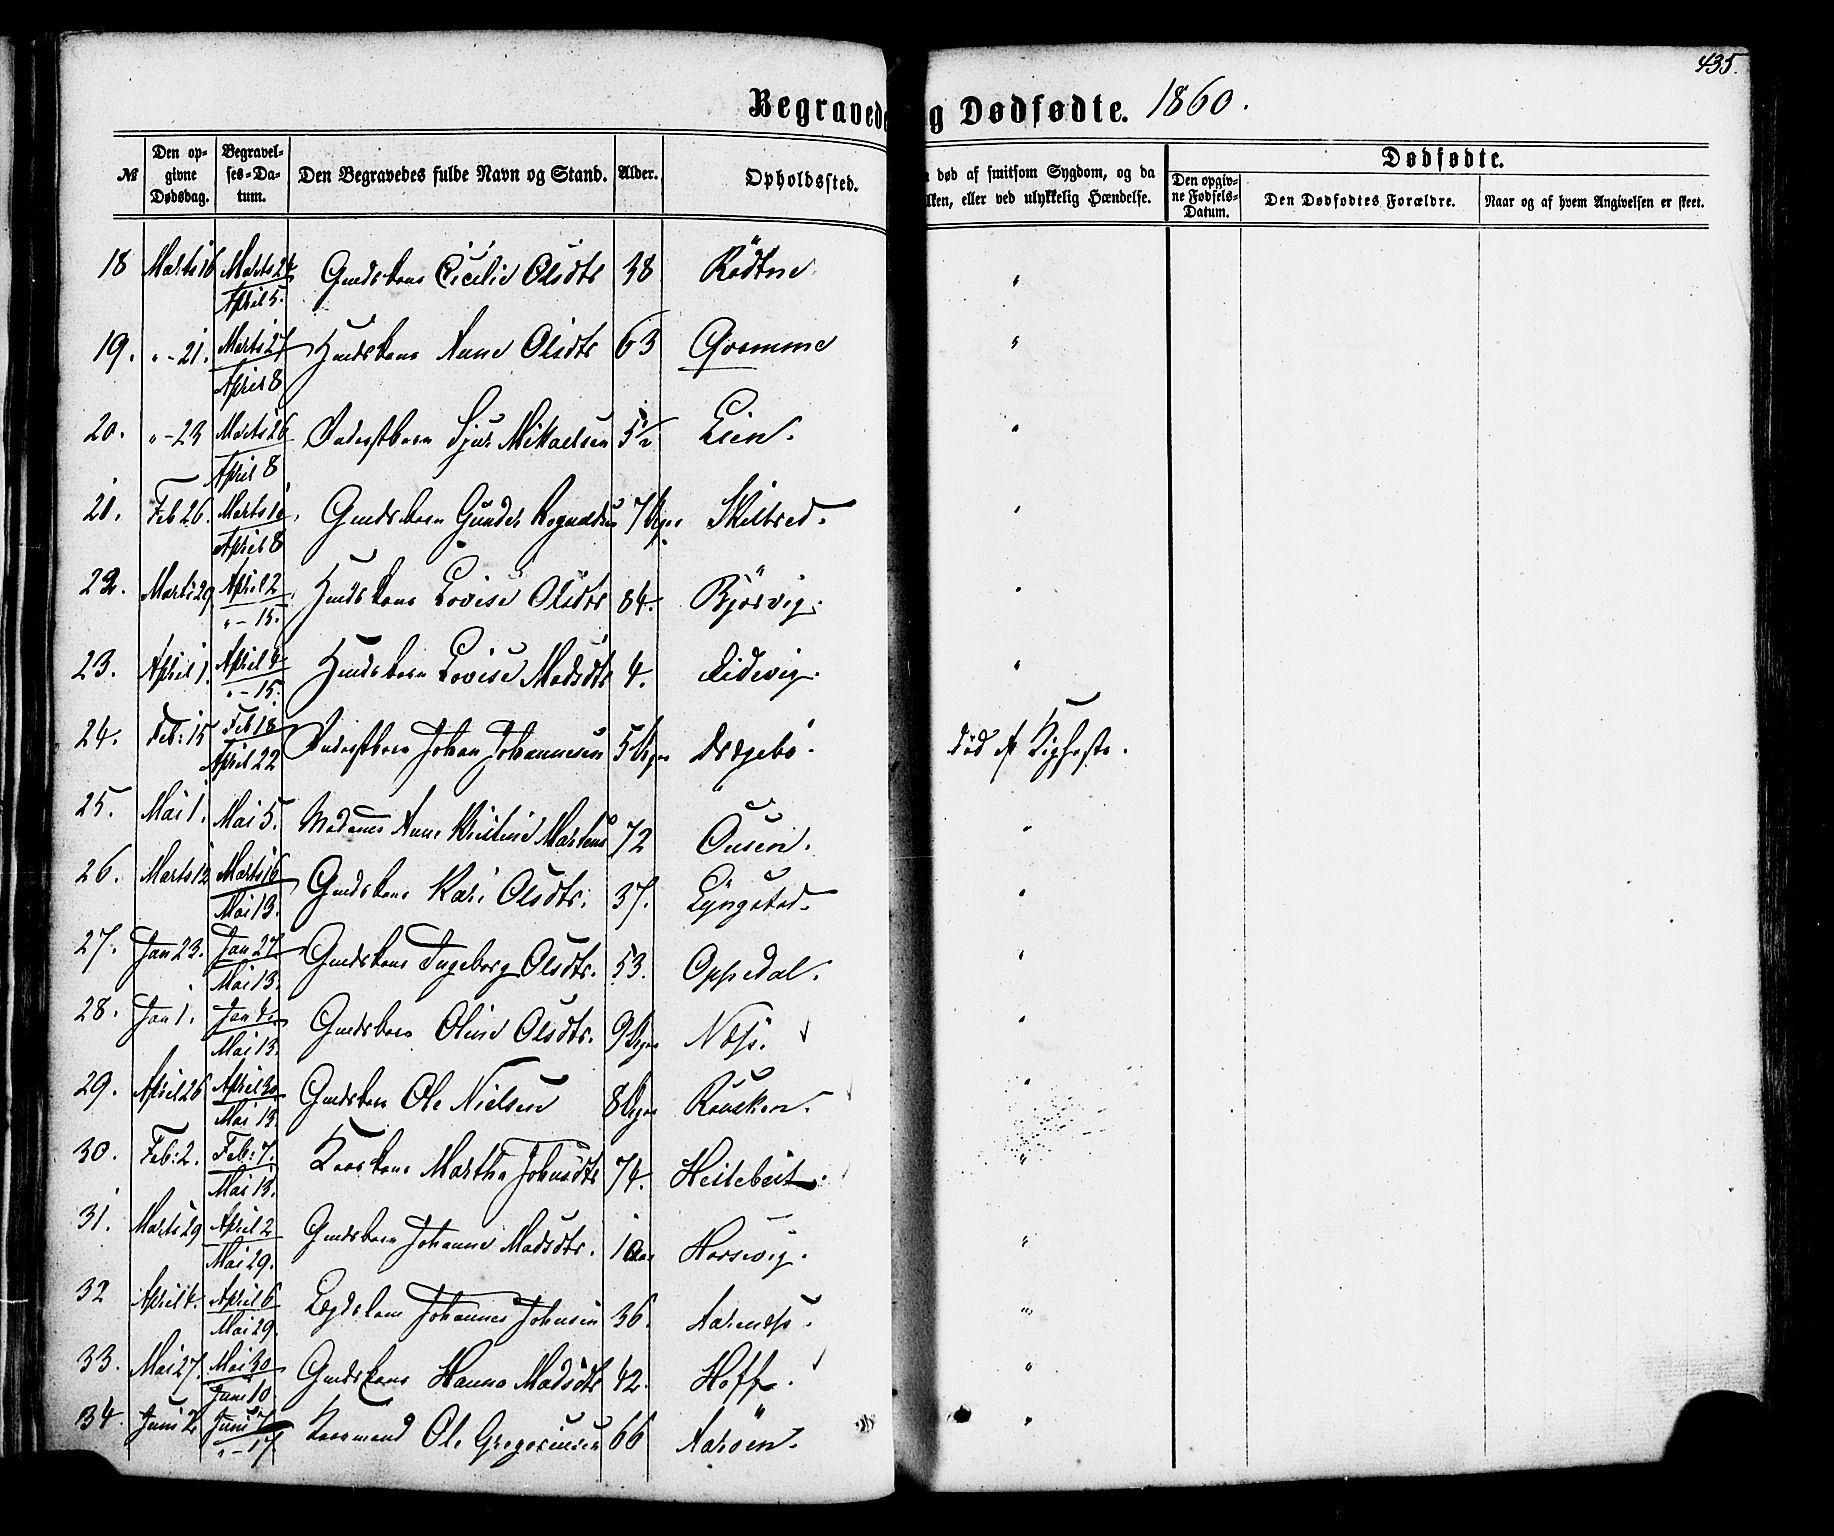 435.
Begravede g Dødfødte. 1860.
№ Den opgivne Dødsdag. Begravelses-Datum. Den Begravedes fulde Navn og Stand. Alder. Opholdssted. død af smitsom Sygdom, og da lken, eller ved ulykkelig Hændelse. Dødfødte.
Den opgivne Fødsels-Datum. Den Dødfødtes Forældre. Naar og af hvem Angivelsen er skeet.
18 Marts 16 Marts 24 April 5. Gmdskone Cicilie Olsdtr 38 "
19. " - 21. Marts 27 April 8 Hmdskone Anne Olsdtr 63 Qvamme "
20. " - 23 Marts 26 April 8 Sjur Mikaelsen 5½ Lien. "
21. Feb 26. Marts 10 April 8 Gmdsbarn Gunder 7 Uger "
22. Marts 29 April 2 " - 15. Hmdskone Lovise Olsdtr 84. Bjørvig. "
23. April 1. April 4 " - 15. Hmdsbarn Lovise Madsdtr 4. "
24. Feb: 15 Feb 18 April 22 Johan Johannesen 5 Uger død af Kighoste.
25. Mai 1. Mai 5. Madame Anne Kristine Martens 72 Ousen. "
26. Marts 12 Marts 16 Mai 13. Gmdskone Kari Olsdtr. 37. Lyngstad. "
27. Jan 23. Jan 27. Mai 13. Gmdskone Ingeborg Olsdtr. 53. Oppedal. "
28. Jan 1. Jan 4. Mai 13. Gmdsbarn Oline Olsdtr. 9 Uger Næss. "
29. April 26 April 30 Mai 13. Gmdsbarn Ole Nielsen 8 Uger "
30. Feb: 2. Feb: 7. Mai 13. Kaarkone Martha Johnsdtr 74. "
31. Marts 29 April 2 Mai 29. Gmdsbarn Johanne Madsdtr. 1 Aar Horsevig. "
32 April 4. April 6 Mai 29. Lægdslem Johannes Johnsen 36. "
33. Mai 27. Mai 30 Juni 10 Gmdskone Hanna Madsdtr 42. Hoff. "
34. Juni 2. Juni 7 " - 17. Kaarmand Ole Gregoriusen 66 Aarøen. "